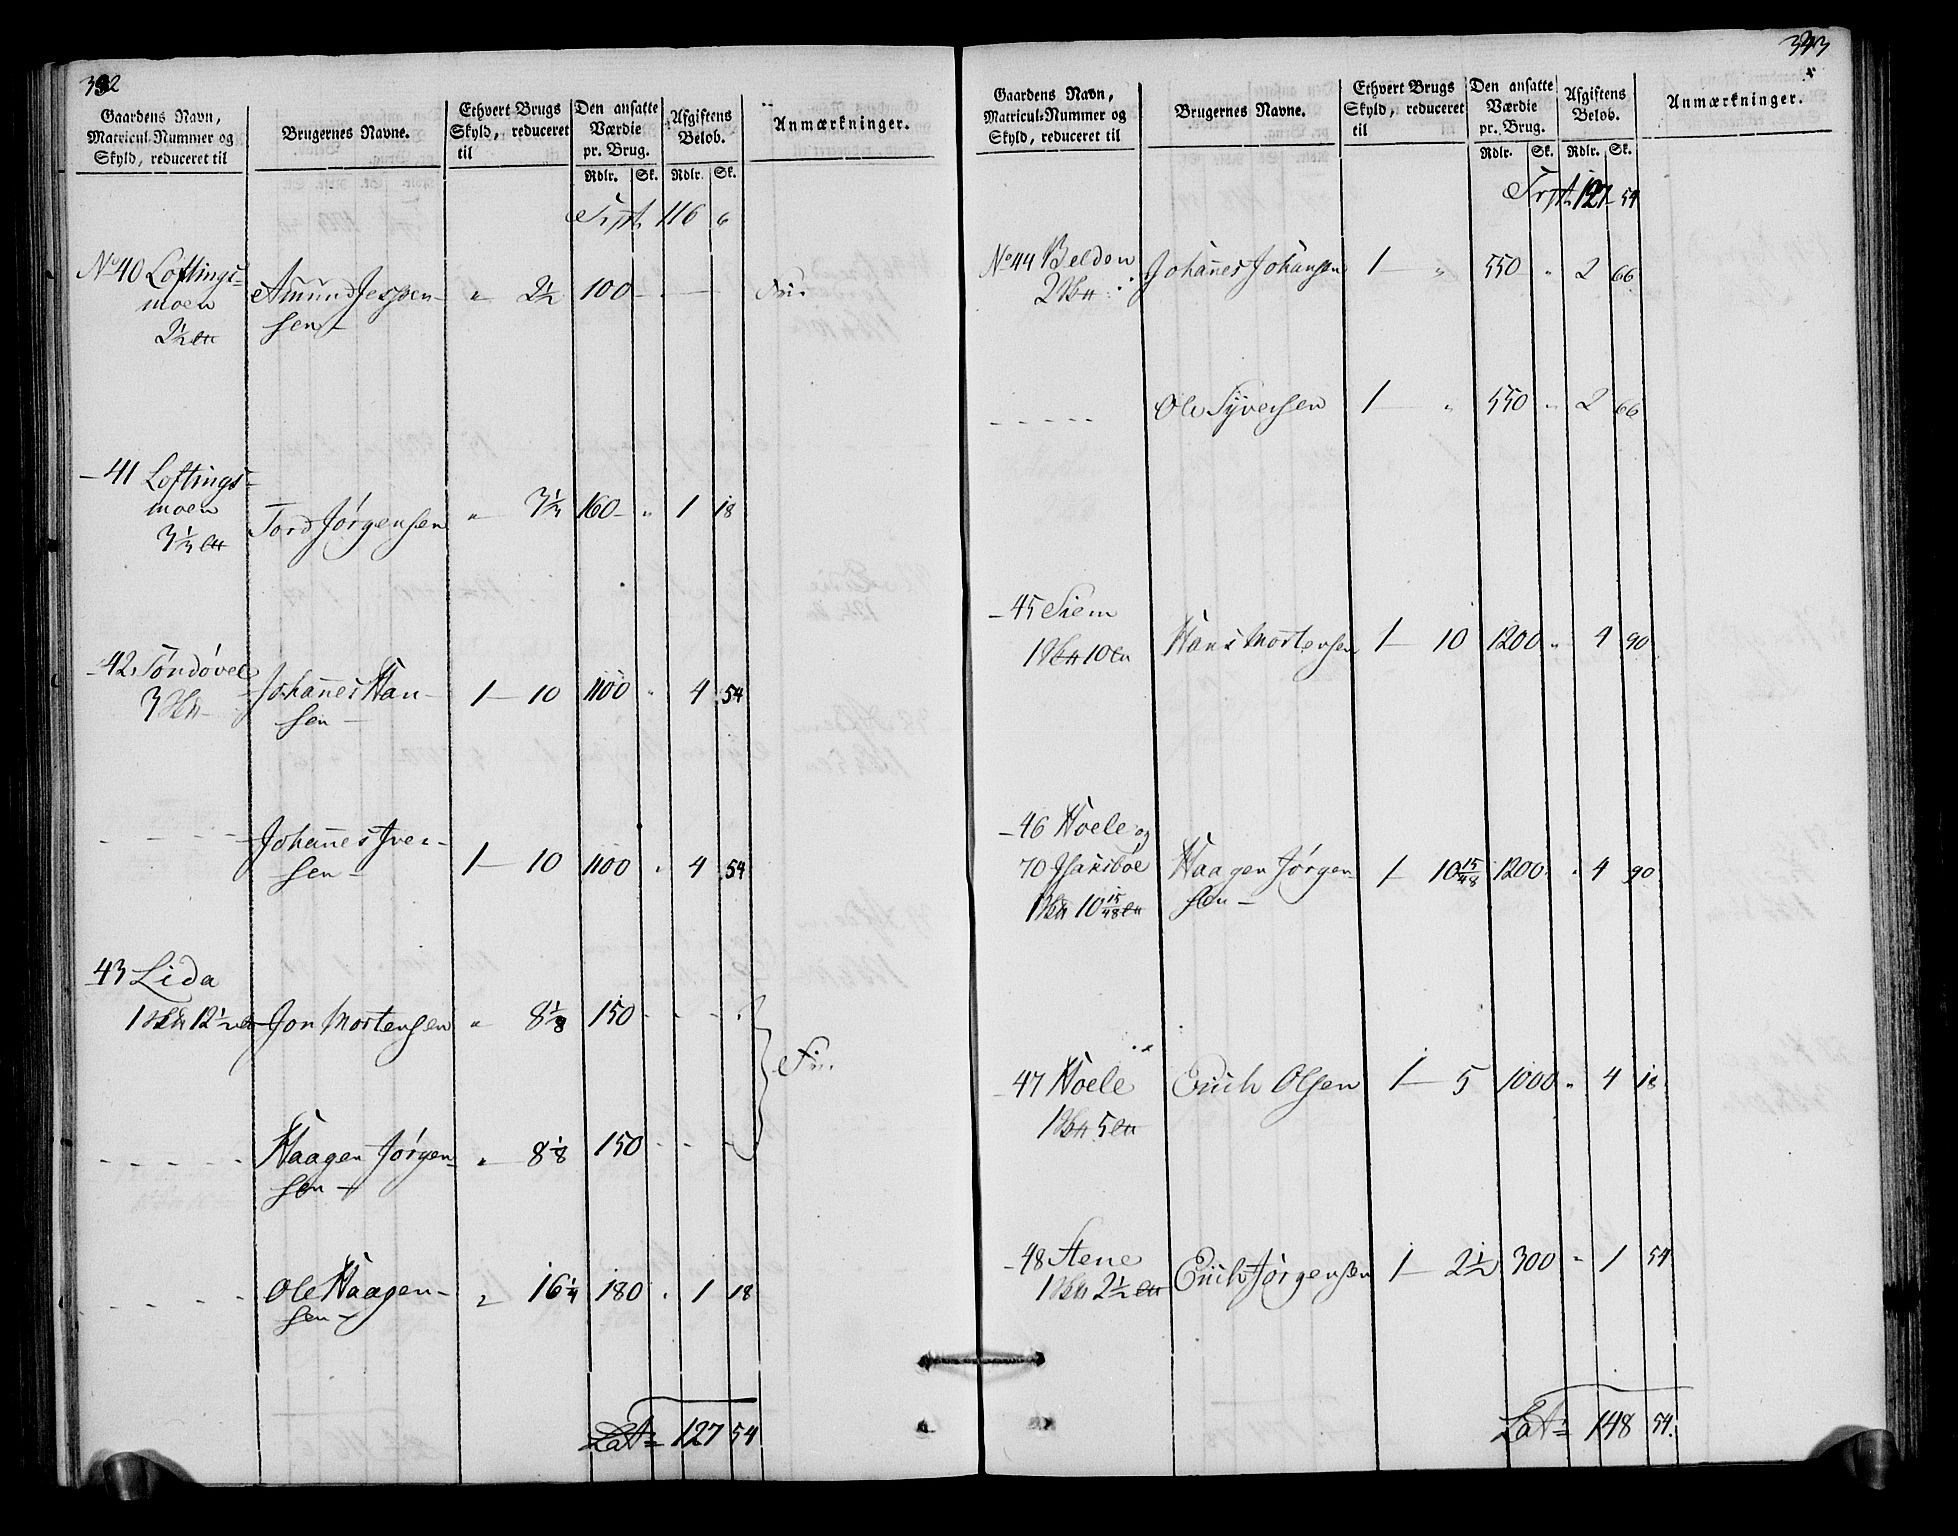 392
Gaardens Navn, Matricul-Nummer og Skyld, reduceret til | Brugernes Navne. | Ethvert Brugs Skyld, reduceret til | Den ansatte Værdie pr. Brug. | Afgiftens Beløb. | Anmærkninger.
Rdlr. Sk. Rdlr. Sk.
116 6
No 40 Loftings-
moen
2½
Amund Jespen-
sen
" 2½ 100 - - - Fri.
- 41 Loftings-
moen
3⅓
Tord Jørgensen " 3⅓ 160 " 1 18
- 42 Tøndøvel
3
Johannes Han-
sen
1 - 10 1100 " 4 54
- - - - Johannes Iver-
sen
1 - 10 1100 " 4 54
43 Lida
1 12½
Jon Mortensen " 8⅛ 150 - - -
Fri.
- - - - Haagen Jørgen-
sen
" 8⅛ 150 - - -
- - - - Ole Haagen-
sen
" 16¼ 180 " 1 18
Lat 127 54
393
Gaardens Navn, Matricul-Nummer og Skyld, reduceret til | Brugernes Navne. | Ethvert Brugs Skyld, reduceret til | Den ansatte Værdie pr. Brug. | Afgiftens Beløb. | Anmærkninger.
Rdlr. Sk. Rdlr. Sk.
127 54
No 44 Belden
2
Johannes Johansen 1 - " 550 " 2 66
- - - - - Ole Syversen 1 - " 550 " 2 66
- 45 Siem
1 10
Hans Mortensen 1 - 10 1200 " 4 90
- 46 Hoele og
70 Isaksbøe
1 10 15/48
Haagen Jørgen-
sen
1 - 10 15/48 1200 " 4 90
47 Hoele
1 5
Erich Olsen 1 - 5 1000 " 4 18
- 48 Stene
1 2½
Erich Jørgensen 1 - 2½ 300 " 1 54
Lat 148 54.